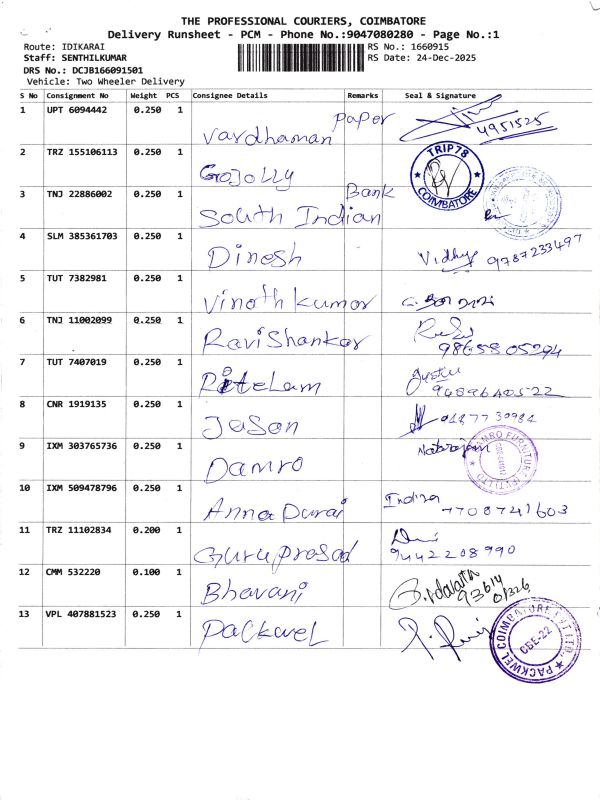 THE PROFESSIONAL COURIERS, COIMBATORE
Delivery Runsheet - PCM - Phone No.:9047080280 - Page No.:1
Route: IDIKARAI RS No.: 1660915
Staff: SENTHILKUMAR RS Date: 24-Dec-2025
DRS No.: DCJB166091501
Vehicle: Two Wheeler Delivery
S No Consignment No Weight PCS Consignee Details Remarks Seal & Signature
1 UPT 6094442 0.250 1 Vardhaman paper 4951525
2 TRZ 155106113 0.250 1 Gojolly TRIP78 COIMBATORE
3 TNJ 22886002 0.250 1 South Indian Bank
4 SLM 385361703 0.250 1 Dinesh Vidhy 9787233497
5 TUT 7382981 0.250 1 Vinoth kumar
6 TNJ 11002099 0.250 1 Ravi Shankar 9865805294
7 TUT 7407019 0.250 1 9489640522
8 CNR 1919135 0.250 1 Jason
9 IXM 303765736 0.250 1 Damro Natarajan
10 IXM 509478796 0.250 1 Anna Durai Indira 7708741603
11 TRZ 11102834 0.200 1 Guru prasad 9442208990
12 CMM 532220 0.100 1 Bhavani 93614 01326
13 VPL 407881523 0.250 1 Packwel PACKWEL COIMBATORE PVT LTD. CBE-22